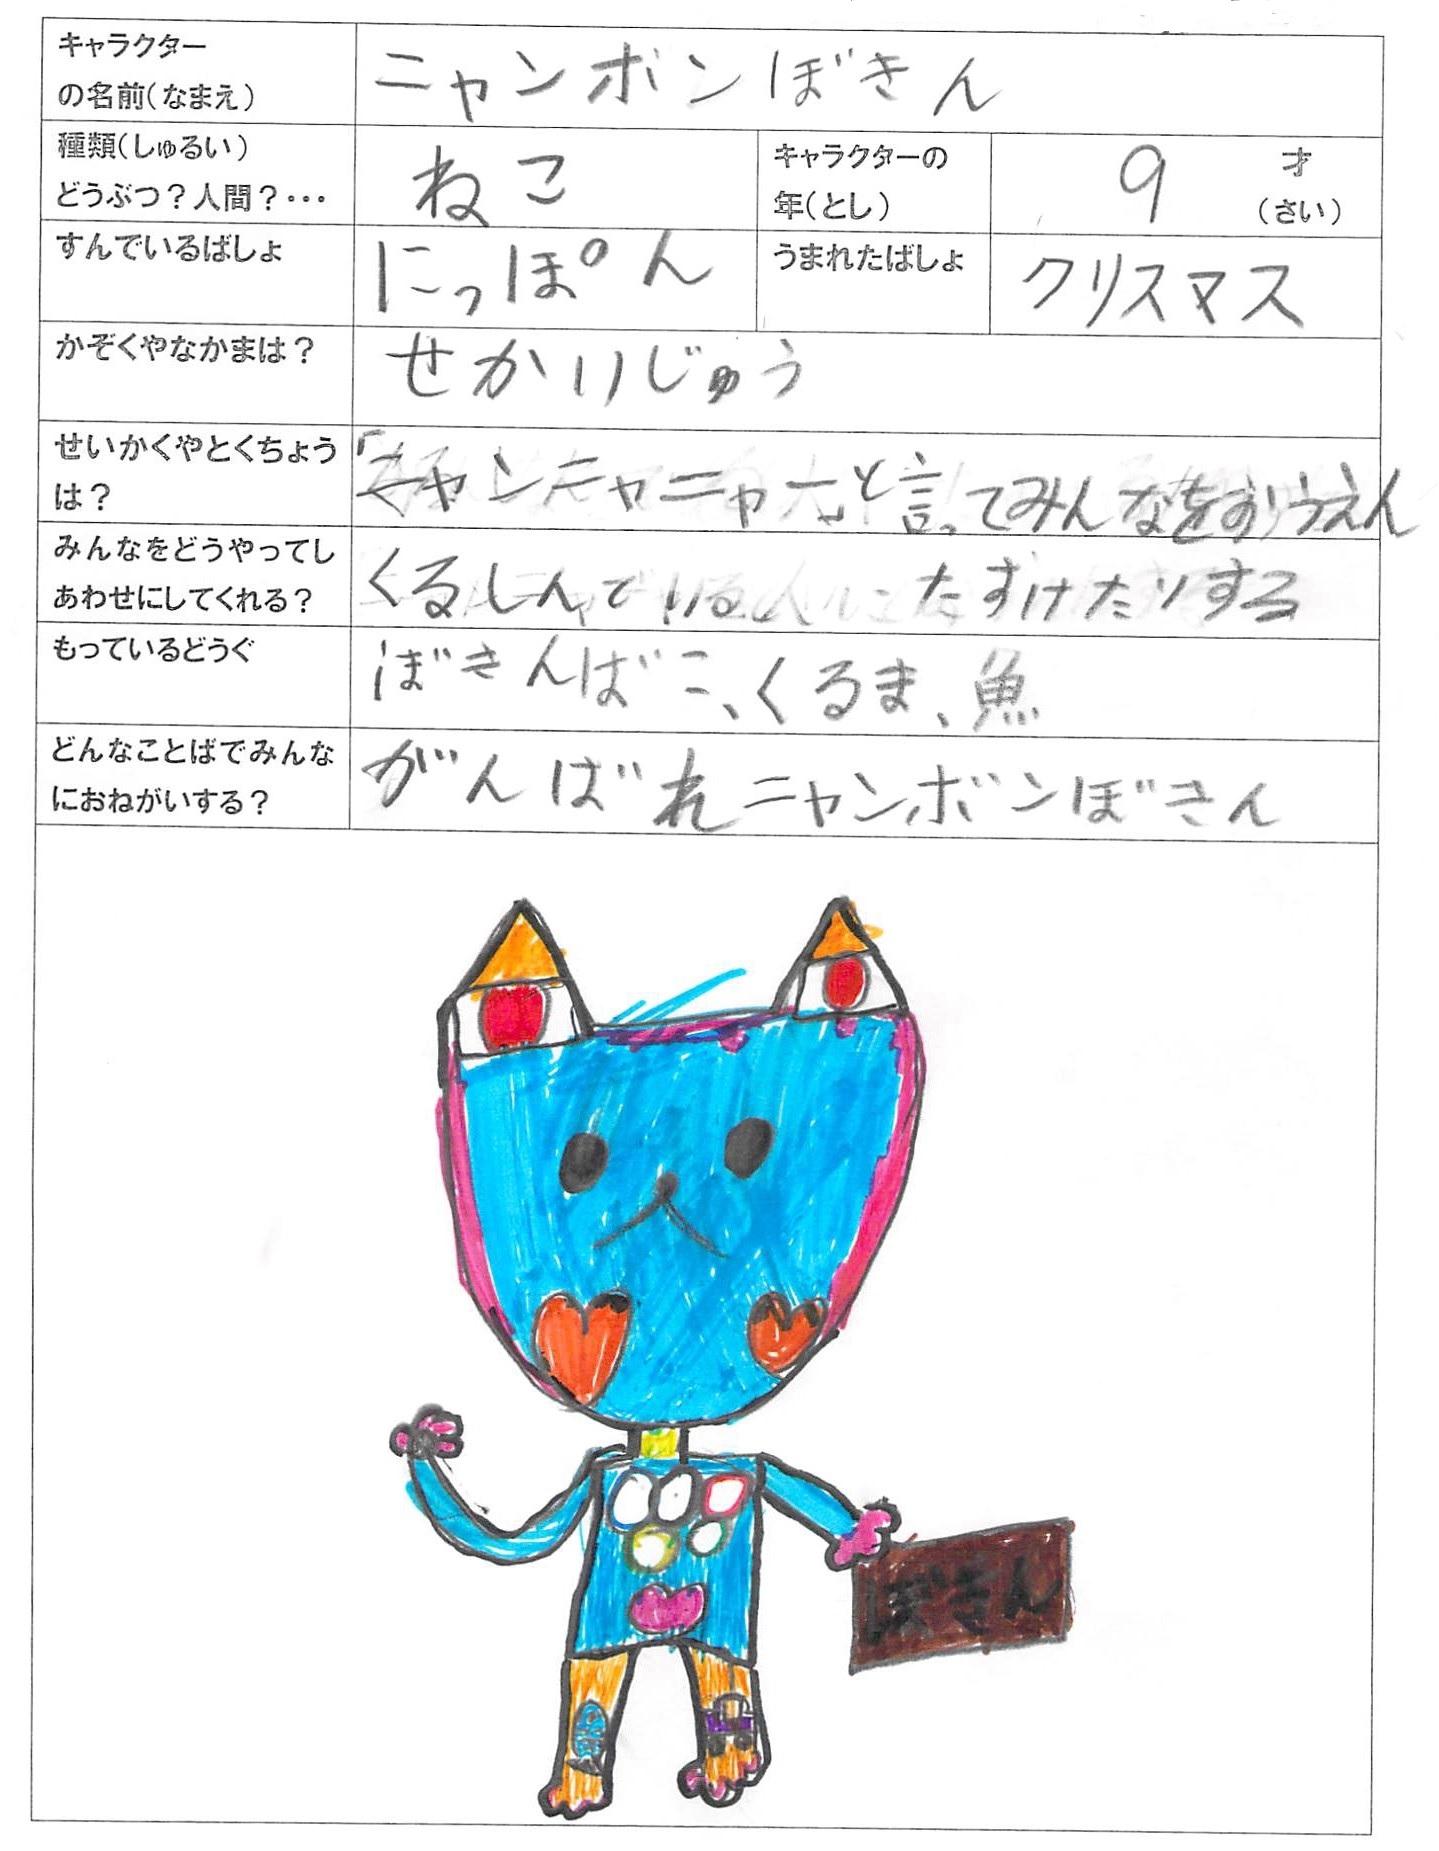 キャラクター
の名前(なまえ)
ニャンボンぼきん
種類(しゅるい)
どうぶつ?人間?・・・
ねこ
キャラクターの
年(とし)
9
才
(さい)
すんでいるばしょ
にっぽん
うまれたばしょ
クリスマス
かぞくやなかまは?
せかいじゅう
せいかくやとくちょう
は?
「ニャンニャニャー」と言ってみんなをおうえん
みんなをどうやってし
あわせにしてくれる?
くるしんでいる人に、たすけたりする
もっているどうぐ
ぼきんばこ、くるま、魚
どんなことばでみんな
におねがいする?
がんばれニャンボンぼきん
ぼきん